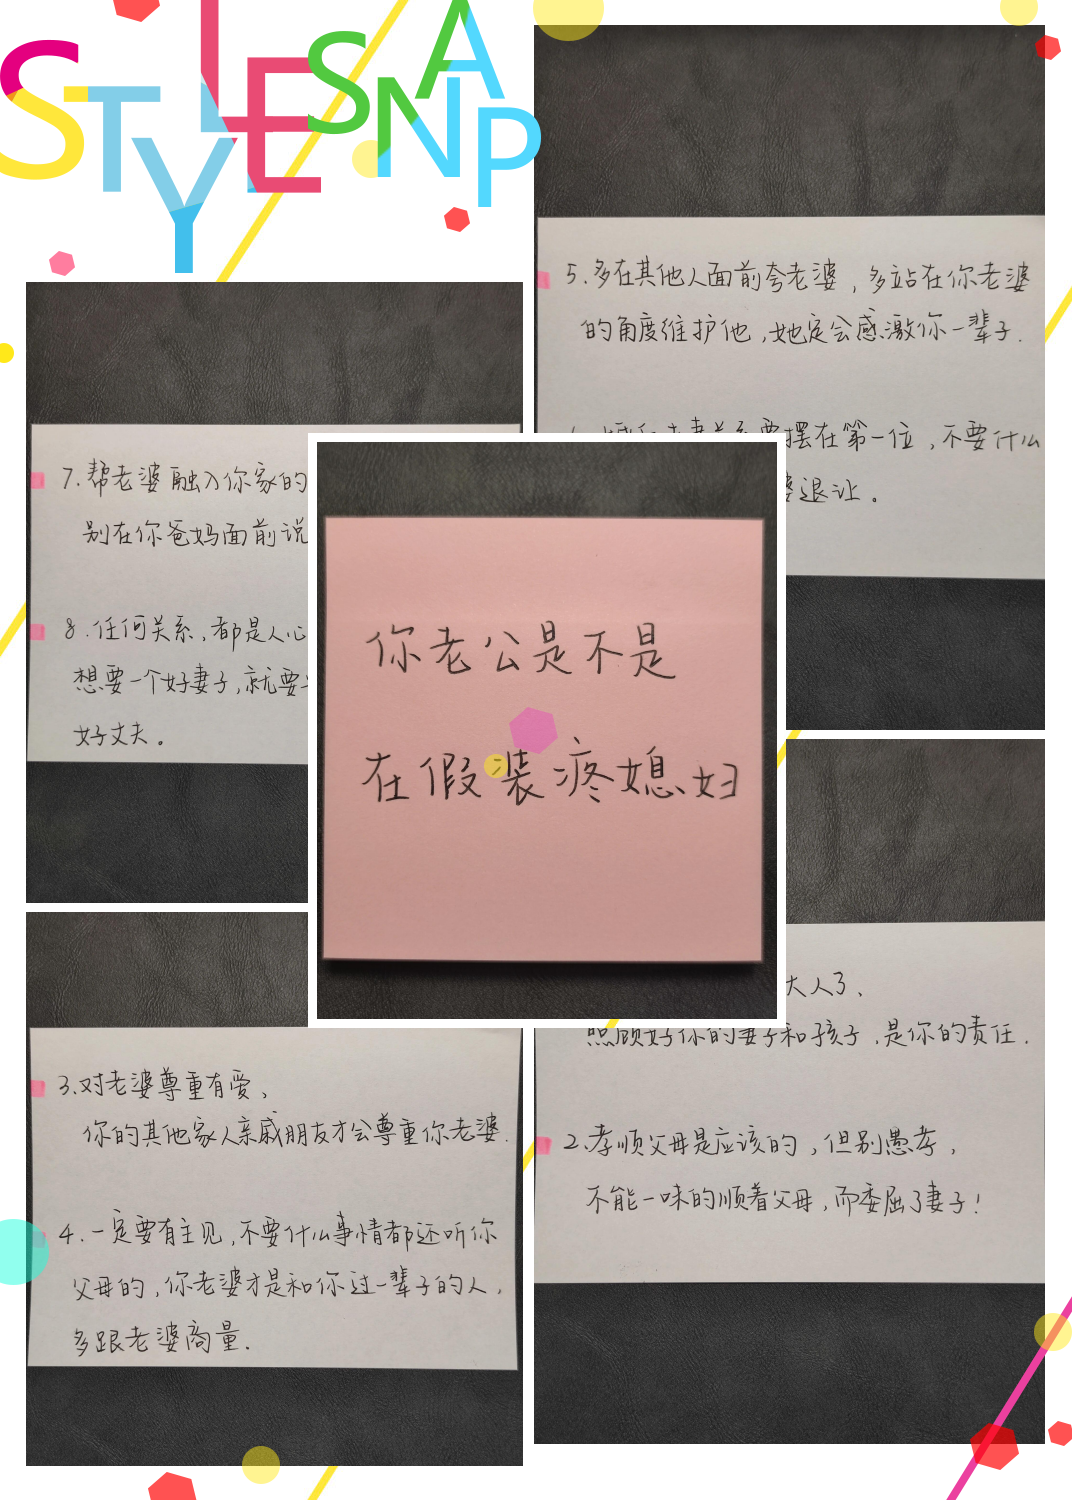 STYLE SNAP
5.多在其他人面前夸老婆，多站在你老婆
的角度维护他，她定会感激你一辈子.
摆在第一位，不要什么
婆退让。
7.帮老婆融入你家的
别在你爸妈面前说
8.任何关系，都是人心
想要一个好妻子，就要
好丈夫。
你老公是不是
在假装疼媳妇
大人了、
照顾好你的妻子和孩子，是你的责任.
2、孝顺父母是应该的，但别愚孝，
不能一味的顺着父母，而委屈了妻子！
3.对老婆尊重有爱、
你的其他家人亲戚朋友才会尊重你老婆.
4.一定要有主见，不要什么事情都还听你
父母的，你老婆才是和你过一辈子的人，
多跟老婆商量.